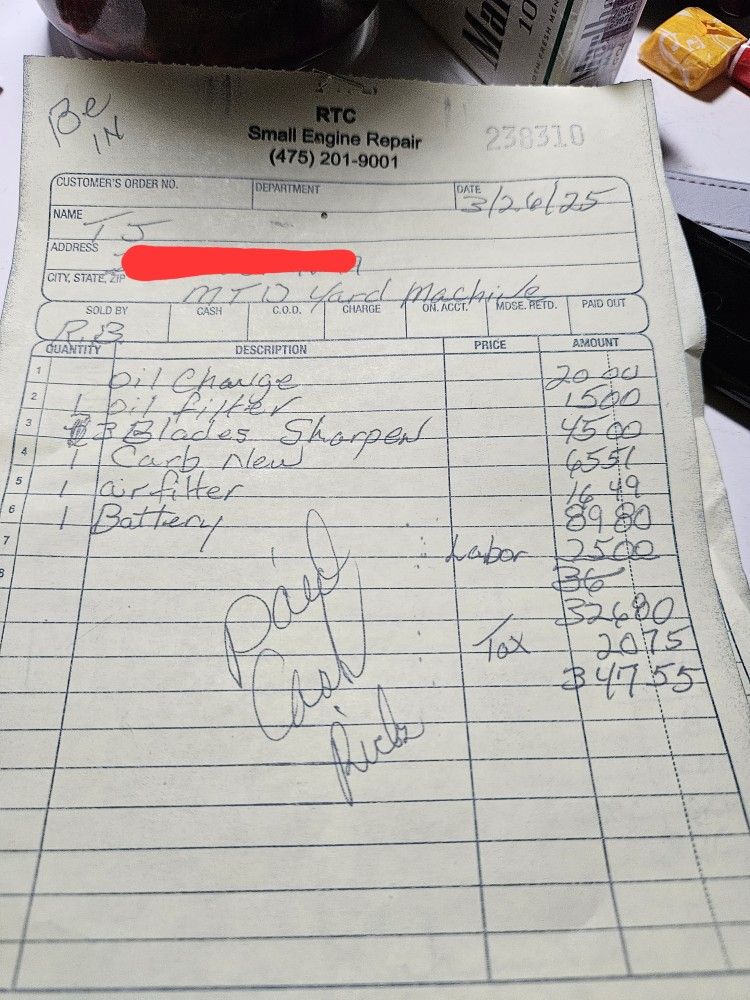 Marl
10
FRESH MEN
Be
IN
RTC
Small Engine Repair
(475) 201-9001
238310
CUSTOMER'S ORDER NO. DEPARTMENT DATE 3/26/25
NAME TJ
ADDRESS
CITY, STATE, ZIP
MTD Yard Machine
SOLD BY CASH C.O.D. CHARGE ON. ACCT. MDSE. RETD. PAID OUT
R.B
QUANTITY DESCRIPTION PRICE AMOUNT
1 Oil Change 20 00
2 1 Oil filter 15 00
3 3 Blades Sharpen 45 00
4 1 Carb New 65 51
5 1 air filter 16 49
6 1 Battery 89 80
7 Labor 25 00
8 36
326 80
Tax 20 75
347 55
Paid
Cash